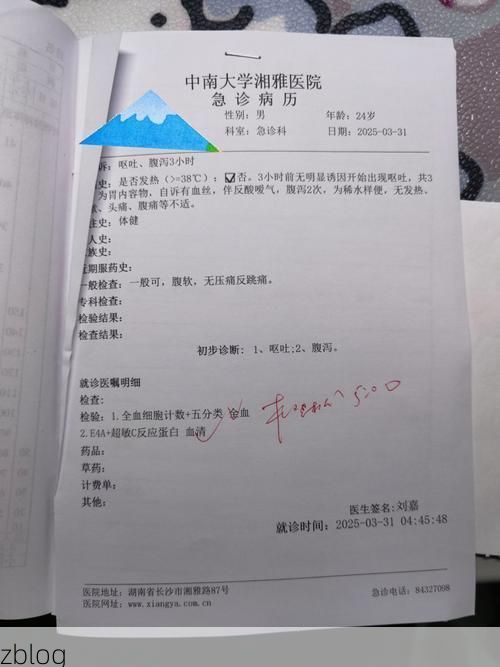 中南大学湘雅医院
急诊病历
性别：男 年龄：24岁
科室：急诊科 日期：2025-03-31
诉：呕吐、腹泻3小时
史：是否发热（>=38℃）；☑否。3小时前无明显诱因开始出现呕吐，共3
为胃内容物，自诉有血丝，伴反酸嗳气，腹泻2次，为稀水样便，无发热、
、头痛、腹痛等不适。
史：体健
人史：
族史：
近期服药史：
一般检查：一般可，腹软，无压痛反跳痛。
专科检查：
检验结果：
检查结果：
初步诊断：1、呕吐;2、腹泻。
就诊医嘱明细
检查：
检验：1.全血细胞计数+五分类 全血
2.E4A+超敏C反应蛋白 血清
药品：
草药：
计费单：
其他：
医生签名:刘嘉
就诊时间：2025-03-31 04:45:48
医院地址：湖南省长沙市湘雅路87号 急诊电话：84327098
医院网址：www.xiangya.com.cn
zblog